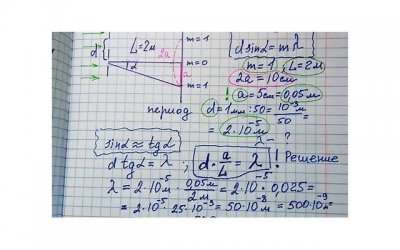 m = 1
d
L = 2м
2a
m = 0
α
a
m = 1
d sinα = mλ
m = 1, L = 2м
2a = 10см
!
a = 5см = 0,05м
период d = 1мм : 50 = 10⁻³м / 50 =
= 2·10⁻⁵м
λ - ?
sinα ≈ tgα
d tgα = λ ; d · a/L = λ ! Решение
λ = 2·10⁻⁵м · 0,05м / 2м = 2·10⁻⁵ · 0,025 =
= 2·10⁻⁵ · 25·10⁻³м = 50·10⁻⁸м = 500·10⁻⁹м =